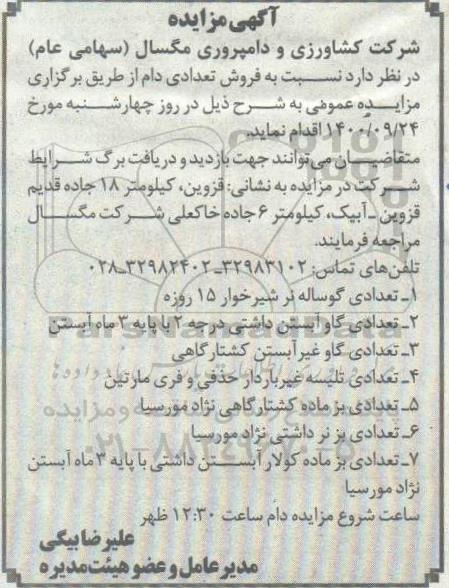 آگهی مزایده
شرکت کشاورزی و دامپروری مگسال (سهامی عام)
در نظر دارد نسبت به فروش تعدادی دام از طریق برگزاری
مزایده عمومی به شرح ذیل در روز چهارشنبه مورخ
۱۴۰۰/۰۹/۲۴ اقدام نماید.
متقاضیان می‌توانند جهت بازدید و دریافت برگ شرایط
شرکت در مزایده به نشانی: قزوین، کیلومتر ۱۸ جاده قدیم
قزوین ـ آبیک، کیلومتر ۶ جاده خاکعلی شرکت مگسال
مراجعه فرمایند.
تلفن‌های تماس: ۳۲۹۸۳۱۰۲ـ ۳۲۹۸۲۴۰۲ـ۰۲۸
۱ـ تعدادی گوساله نر شیرخوار ۱۵ روزه
۲ـ تعدادی گاو آبستن داشتی درجه ۲ با پایه ۳ ماه آبستن
۳ـ تعدادی گاو غیرآبستن کشتارگاهی
۴ـ تعدادی تلیسه غیرباردار حذفی و فری مارتین
۵ـ تعدادی بز ماده کشتارگاهی نژاد مورسیا
۶ـ تعدادی بز نر داشتی نژاد مورسیا
۷ـ تعدادی بز ماده کولار آبستن داشتی با پایه ۳ ماه آبستن
نژاد مورسیا
ساعت شروع مزایده دام ساعت ۱۲:۳۰ ظهر
علیرضا بیگی
مدیرعامل و عضو هیئت مدیره
ParsNamadData